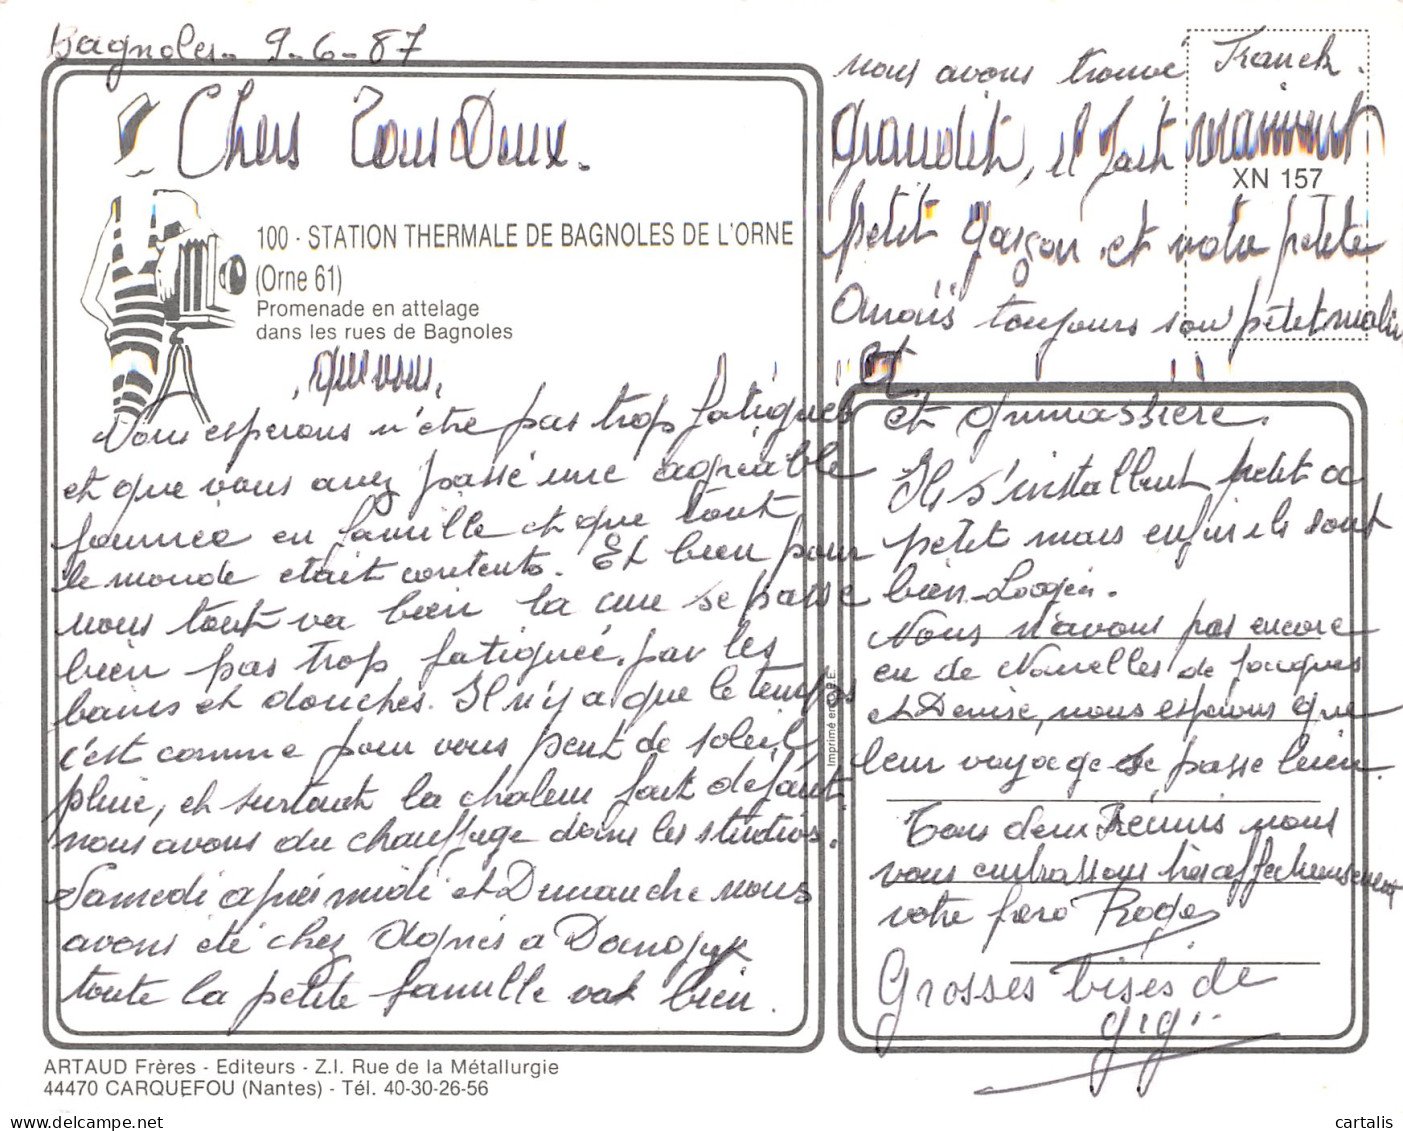 Bagnoles - 9-6-87
Chers Tous Deux.
100 - STATION THERMALE DE BAGNOLES DE L'ORNE
(Orne 61)
Promenade en attelage
dans les rues de Bagnoles
que vous
Nous espérons n'être pas trop fatigués
et que vous avez passé une agréable
journée en famille et que tout
le monde était contents. Et bien pour
nous tout va bien la cure se passe
bien pas trop fatiguée par les
bains et douches. Il n'y a que le temps
c'est comme pour vous peut de soleil
pluie, et surtout la chaleur fait défaut
nous avons du chauffage dans les studios.
Samedi après midi et Dimanche nous
avons été chez Agnès a
toute la petite famille vat bien.
nous avons trouvé Franck.
grandit, il fait vraiment
XN 157
petit garçon et votre petite
Anaïs toujours son petit malin
et
et grimassière.
Ils s'installent petit a
petit mais enfin ils sont
bien Logés.
Nous n'avons pas encore
eu de Nouvelles de Jacques
et Denise, nous espérons que
leur voyage se passe bien.
Tous deux Réunis nous
vous embrassons très affectueusement
votre frère Roger
Grosses bises de
gigi
Imprimé en C.E.E.
ARTAUD Frères - Editeurs - Z.I. Rue de la Métallurgie
44470 CARQUEFOU (Nantes) - Tél. 40-30-26-56
cartalis